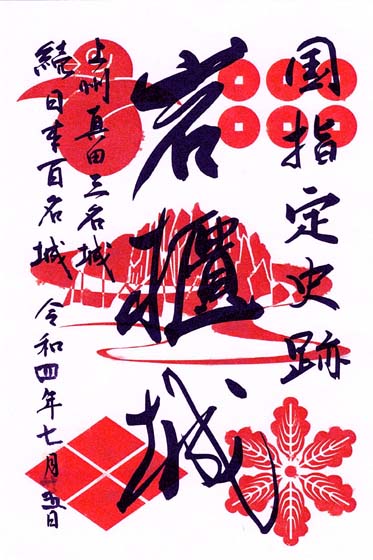 国指定史跡
岩櫃城
上州真田三名城
続日本百名城
令和四年七月十五日